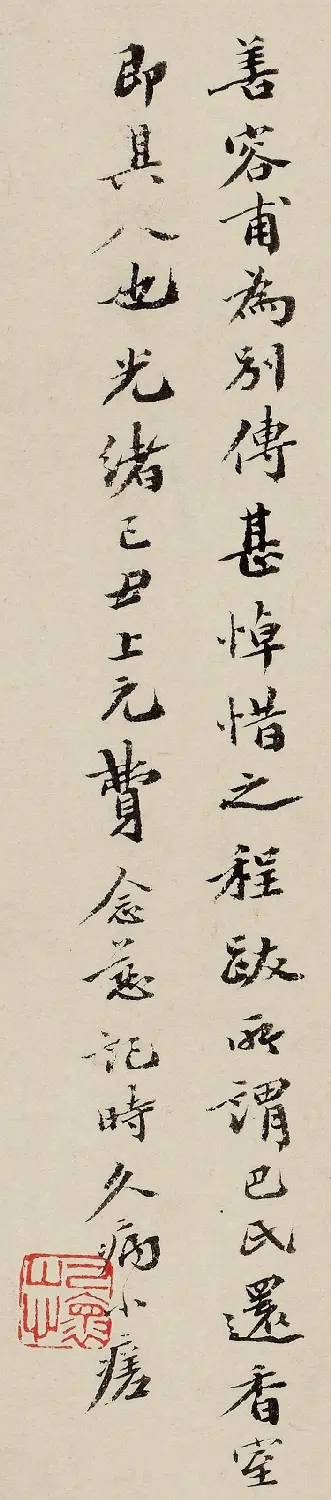 善容甫為別傳甚悼惜之程跋所謂巴氏還香室
即其人也光緒己丑上元費念慈記時久病小瘥
屺懷